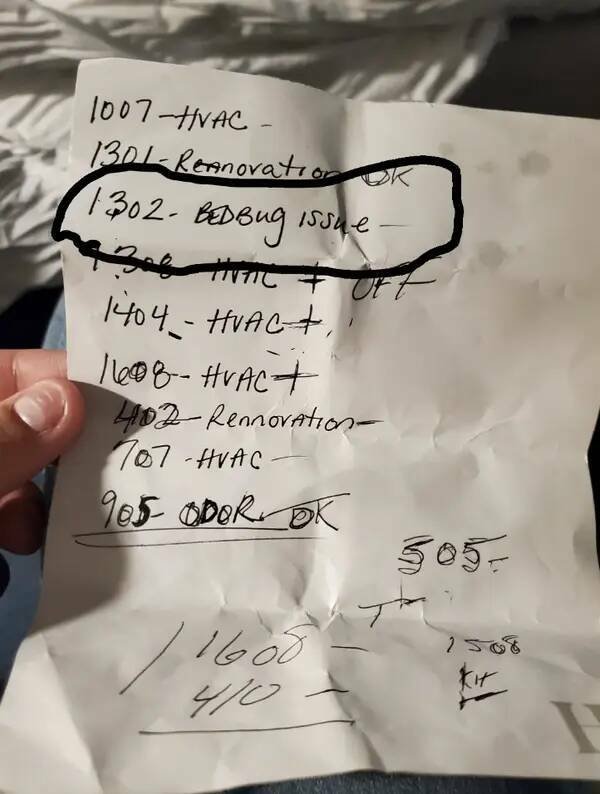 1007 - HVAC -
1301 - Rennovation OK
1302 - BEDBug issue -
1308 HVAC + OFF
1404 - HVAC +
1608 - HVAC +
402 - Rennovation -
707 - HVAC -
905 - ODOR OK
505 -
1608 -
1508
410 -
Kit
H